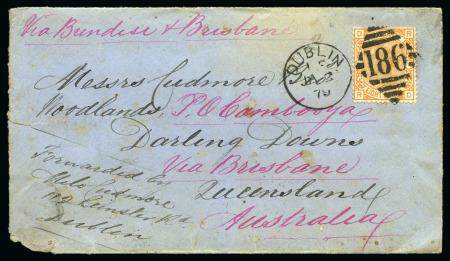 Via Bundisi & Brisbane
DUBLIN
JA 2
79
186
Messrs Cudmore
Woodlands, P.O Cambooya
Darling Downs
Via Brisbane
Queensland
Australia
Forwarded by
Cudmore
Leinster Rd
Dublin